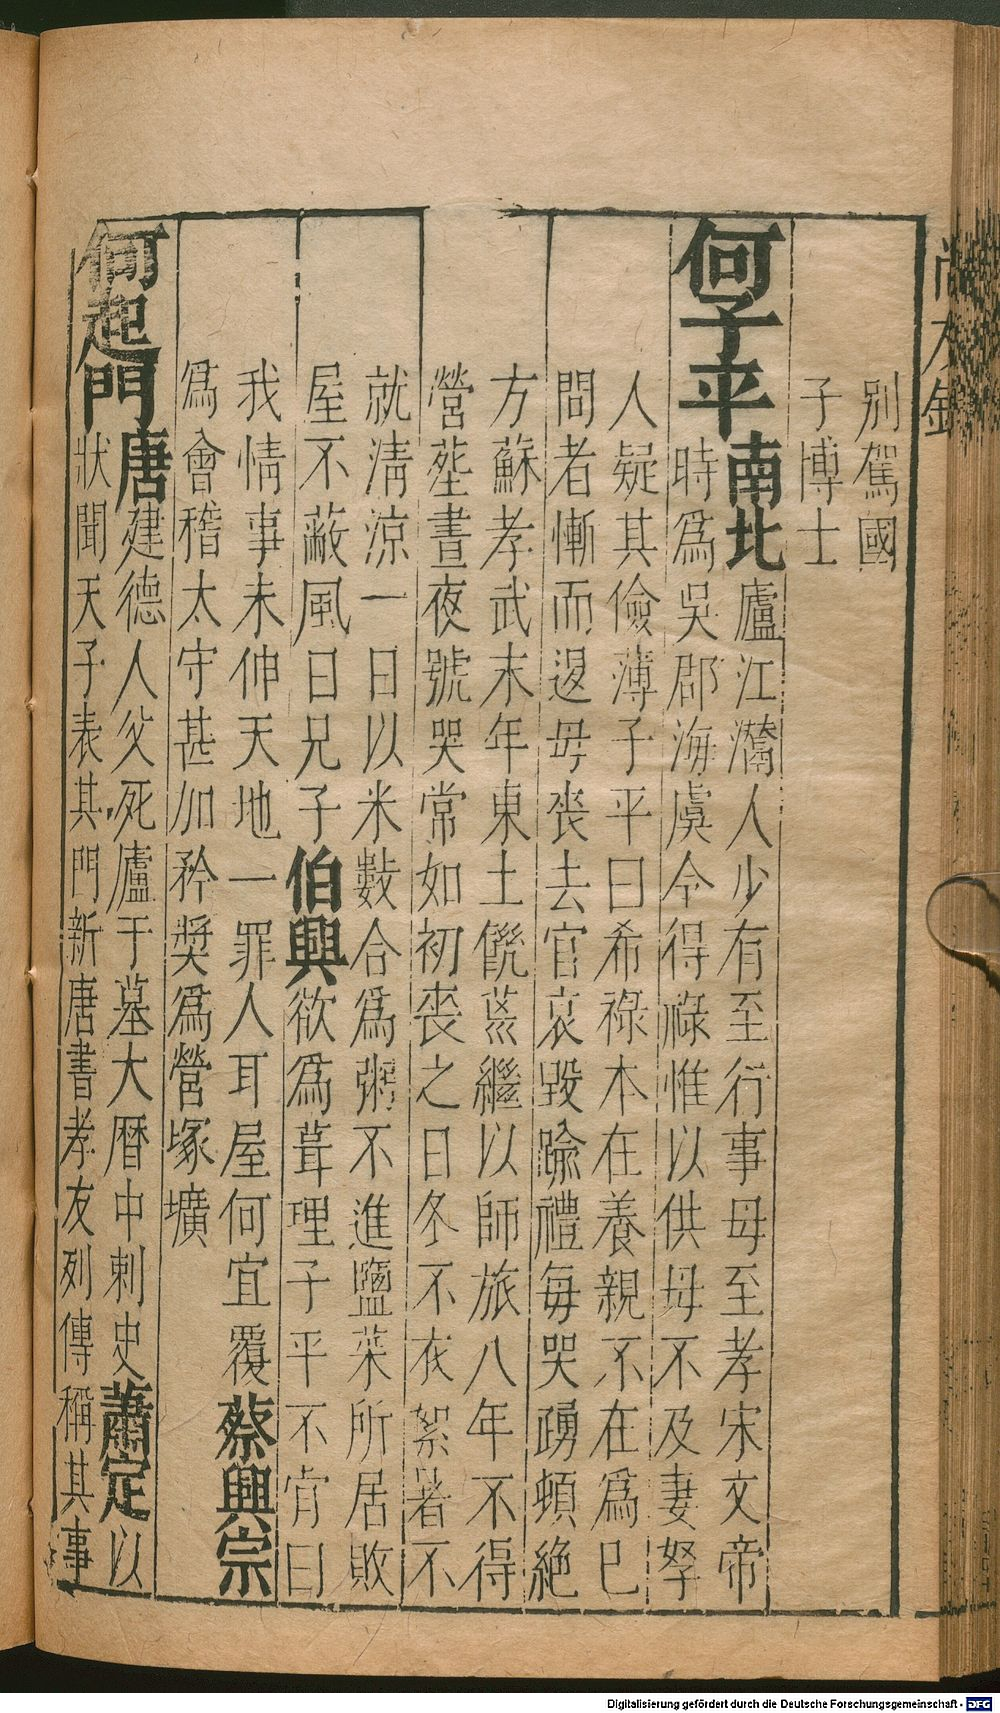 別駕國
子博士
何子平 南北 廬江灊人少有至行事母至孝宋文帝
時為吳郡海虞令得祿惟以供母不及妻孥
人疑其儉薄子平曰希祿本在養親不在為已
問者慚而退毋喪去官哀毀踰禮每哭踴頓絶
方蘇孝武末年東土饑荒繼以師旅八年不得
營塟晝夜號哭常如初喪之日冬不衣絮暑不
就清涼一日以米數合為粥不進鹽菜所居敗
屋不蔽風日兄子伯興欲為葺理子平不肯曰
我情事未伸天地一罪人耳屋何宜覆蔡興宗
為會稽太守甚加矜奬為營塚壙
何起門 唐建德人父死廬于墓大曆中刺史蕭定以
狀聞天子表其門新唐書孝友列傳稱其事
Digitalisierung gefördert durch die Deutsche Forschungsgemeinschaft - DFG